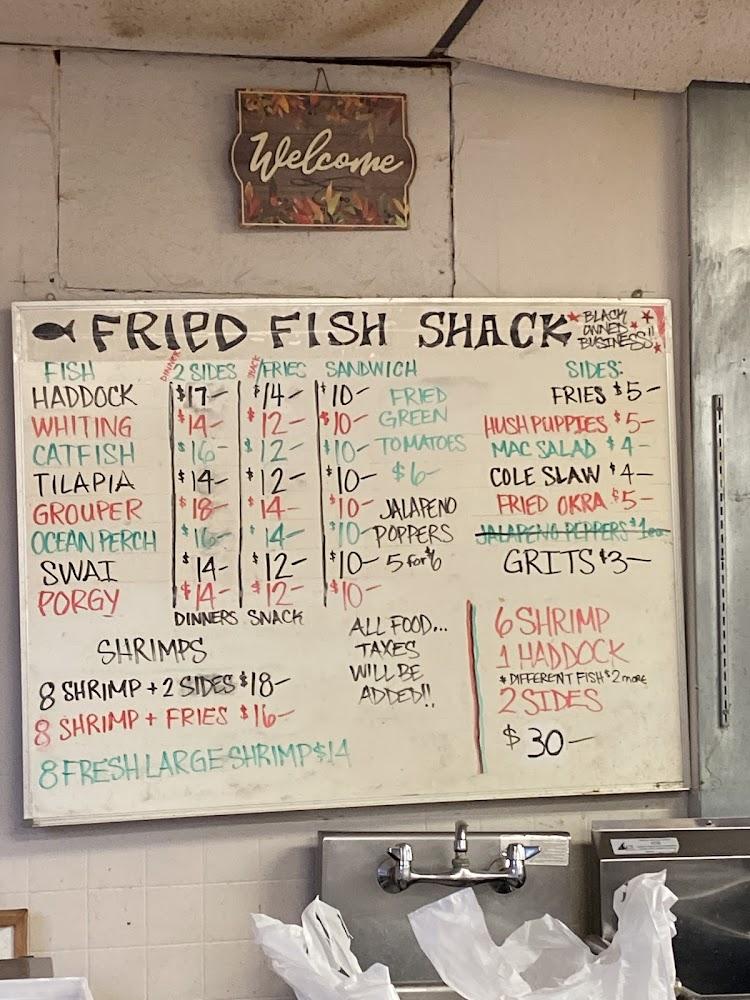 Welcome
FRIED FISH SHACK
BLACK
OWNED
BUSINESS!!
FISH DINNER 2 SIDES SNACK /FRIES SANDWICH
HADDOCK $17- $14- $10-
WHITING $14- $12- $10-
CATFISH $16- $12- $10-
TILAPIA $14- $12- $10-
GROUPER $18- $14- $10-
OCEAN PERCH $16- $14- $10-
SWAI $14- $12- $10-
PORGY $14- $12- $10-
DINNERS SNACK
FRIED
GREEN
TOMATOES
$6-
JALAPENO
POPPERS
5 for $6
SIDES:
FRIES $5-
HUSH PUPPIES $5-
MAC SALAD $4-
COLE SLAW $4-
FRIED OKRA $5-
JALAPENO PEPPERS $1ea
GRITS $3-
SHRIMPS
8 SHRIMP + 2 SIDES $18-
8 SHRIMP + FRIES $16-
8 FRESH LARGE SHRIMP $14
ALL FOOD...
TAXES
WILL BE
ADDED!!
6 SHRIMP
1 HADDOCK
* DIFFERENT FISH $2 more
2 SIDES
$30-